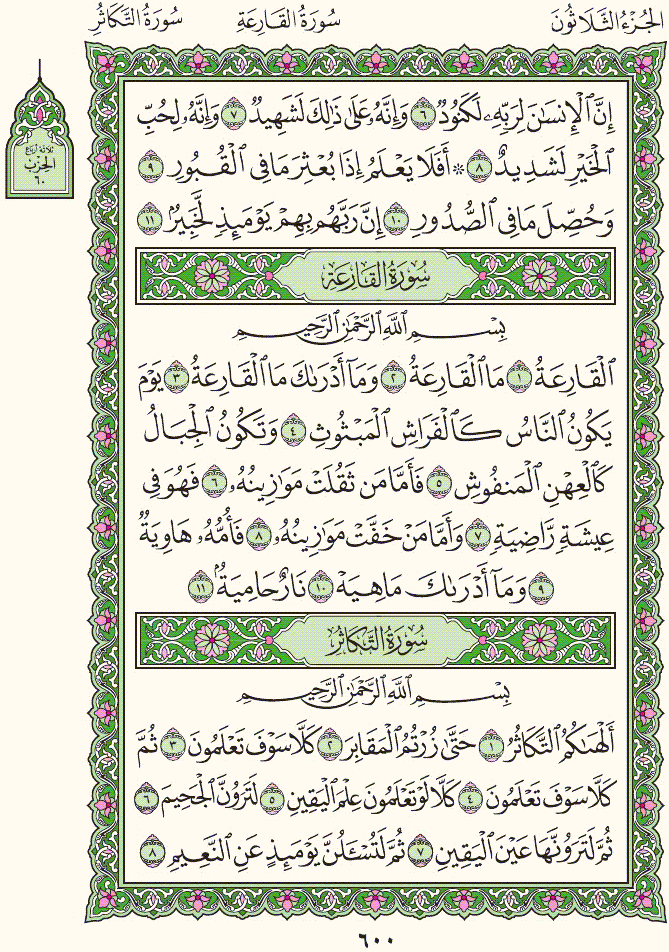 الجُزْءُ الثَّلَاثُونَ سُورَةُ القَارِعَةِ سُورَةُ التَّكَاثُرِ
ثلاثة أرباع
الحِزْب
٦٠
إِنَّ ٱلْإِنسَٰنَ لِرَبِّهِۦ لَكَنُودٌ ٦ وَإِنَّهُۥ عَلَىٰ ذَٰلِكَ لَشَهِيدٌ ٧ وَإِنَّهُۥ لِحُبِّ
ٱلْخَيْرِ لَشَدِيدٌ ٨ ۞ أَفَلَا يَعْلَمُ إِذَا بُعْثِرَ مَا فِى ٱلْقُبُورِ ٩
وَحُصِّلَ مَا فِى ٱلصُّدُورِ ١٠ إِنَّ رَبَّهُم بِهِمْ يَوْمَئِذٍ لَّخَبِيرٌۢ ١١
سُورَةُ القَارِعَةِ
بِسْمِ ٱللَّهِ ٱلرَّحْمَٰنِ ٱلرَّحِيمِ
ٱلْقَارِعَةُ ١ مَا ٱلْقَارِعَةُ ٢ وَمَآ أَدْرَىٰكَ مَا ٱلْقَارِعَةُ ٣ يَوْمَ
يَكُونُ ٱلنَّاسُ كَٱلْفَرَاشِ ٱلْمَبْثُوثِ ٤ وَتَكُونُ ٱلْجِبَالُ
كَٱلْعِهْنِ ٱلْمَنفُوشِ ٥ فَأَمَّا مَن ثَقُلَتْ مَوَٰزِينُهُۥ ٦ فَهُوَ فِى
عِيشَةٍ رَّاضِيَةٍ ٧ وَأَمَّا مَنْ خَفَّتْ مَوَٰزِينُهُۥ ٨ فَأُمُّهُۥ هَاوِيَةٌ
٩ وَمَآ أَدْرَىٰكَ مَا هِيَهْ ١٠ نَارٌ حَامِيَةٌۢ ١١
سُورَةُ التَّكَاثُرِ
بِسْمِ ٱللَّهِ ٱلرَّحْمَٰنِ ٱلرَّحِيمِ
أَلْهَىٰكُمُ ٱلتَّكَاثُرُ ١ حَتَّىٰ زُرْتُمُ ٱلْمَقَابِرَ ٢ كَلَّا سَوْفَ تَعْلَمُونَ ٣ ثُمَّ
كَلَّا سَوْفَ تَعْلَمُونَ ٤ كَلَّا لَوْ تَعْلَمُونَ عِلْمَ ٱلْيَقِينِ ٥ لَتَرَوُنَّ ٱلْجَحِيمَ ٦
ثُمَّ لَتَرَوُنَّهَا عَيْنَ ٱلْيَقِينِ ٧ ثُمَّ لَتُسْـَٔلُنَّ يَوْمَئِذٍ عَنِ ٱلنَّعِيمِ ٨
٦٠٠